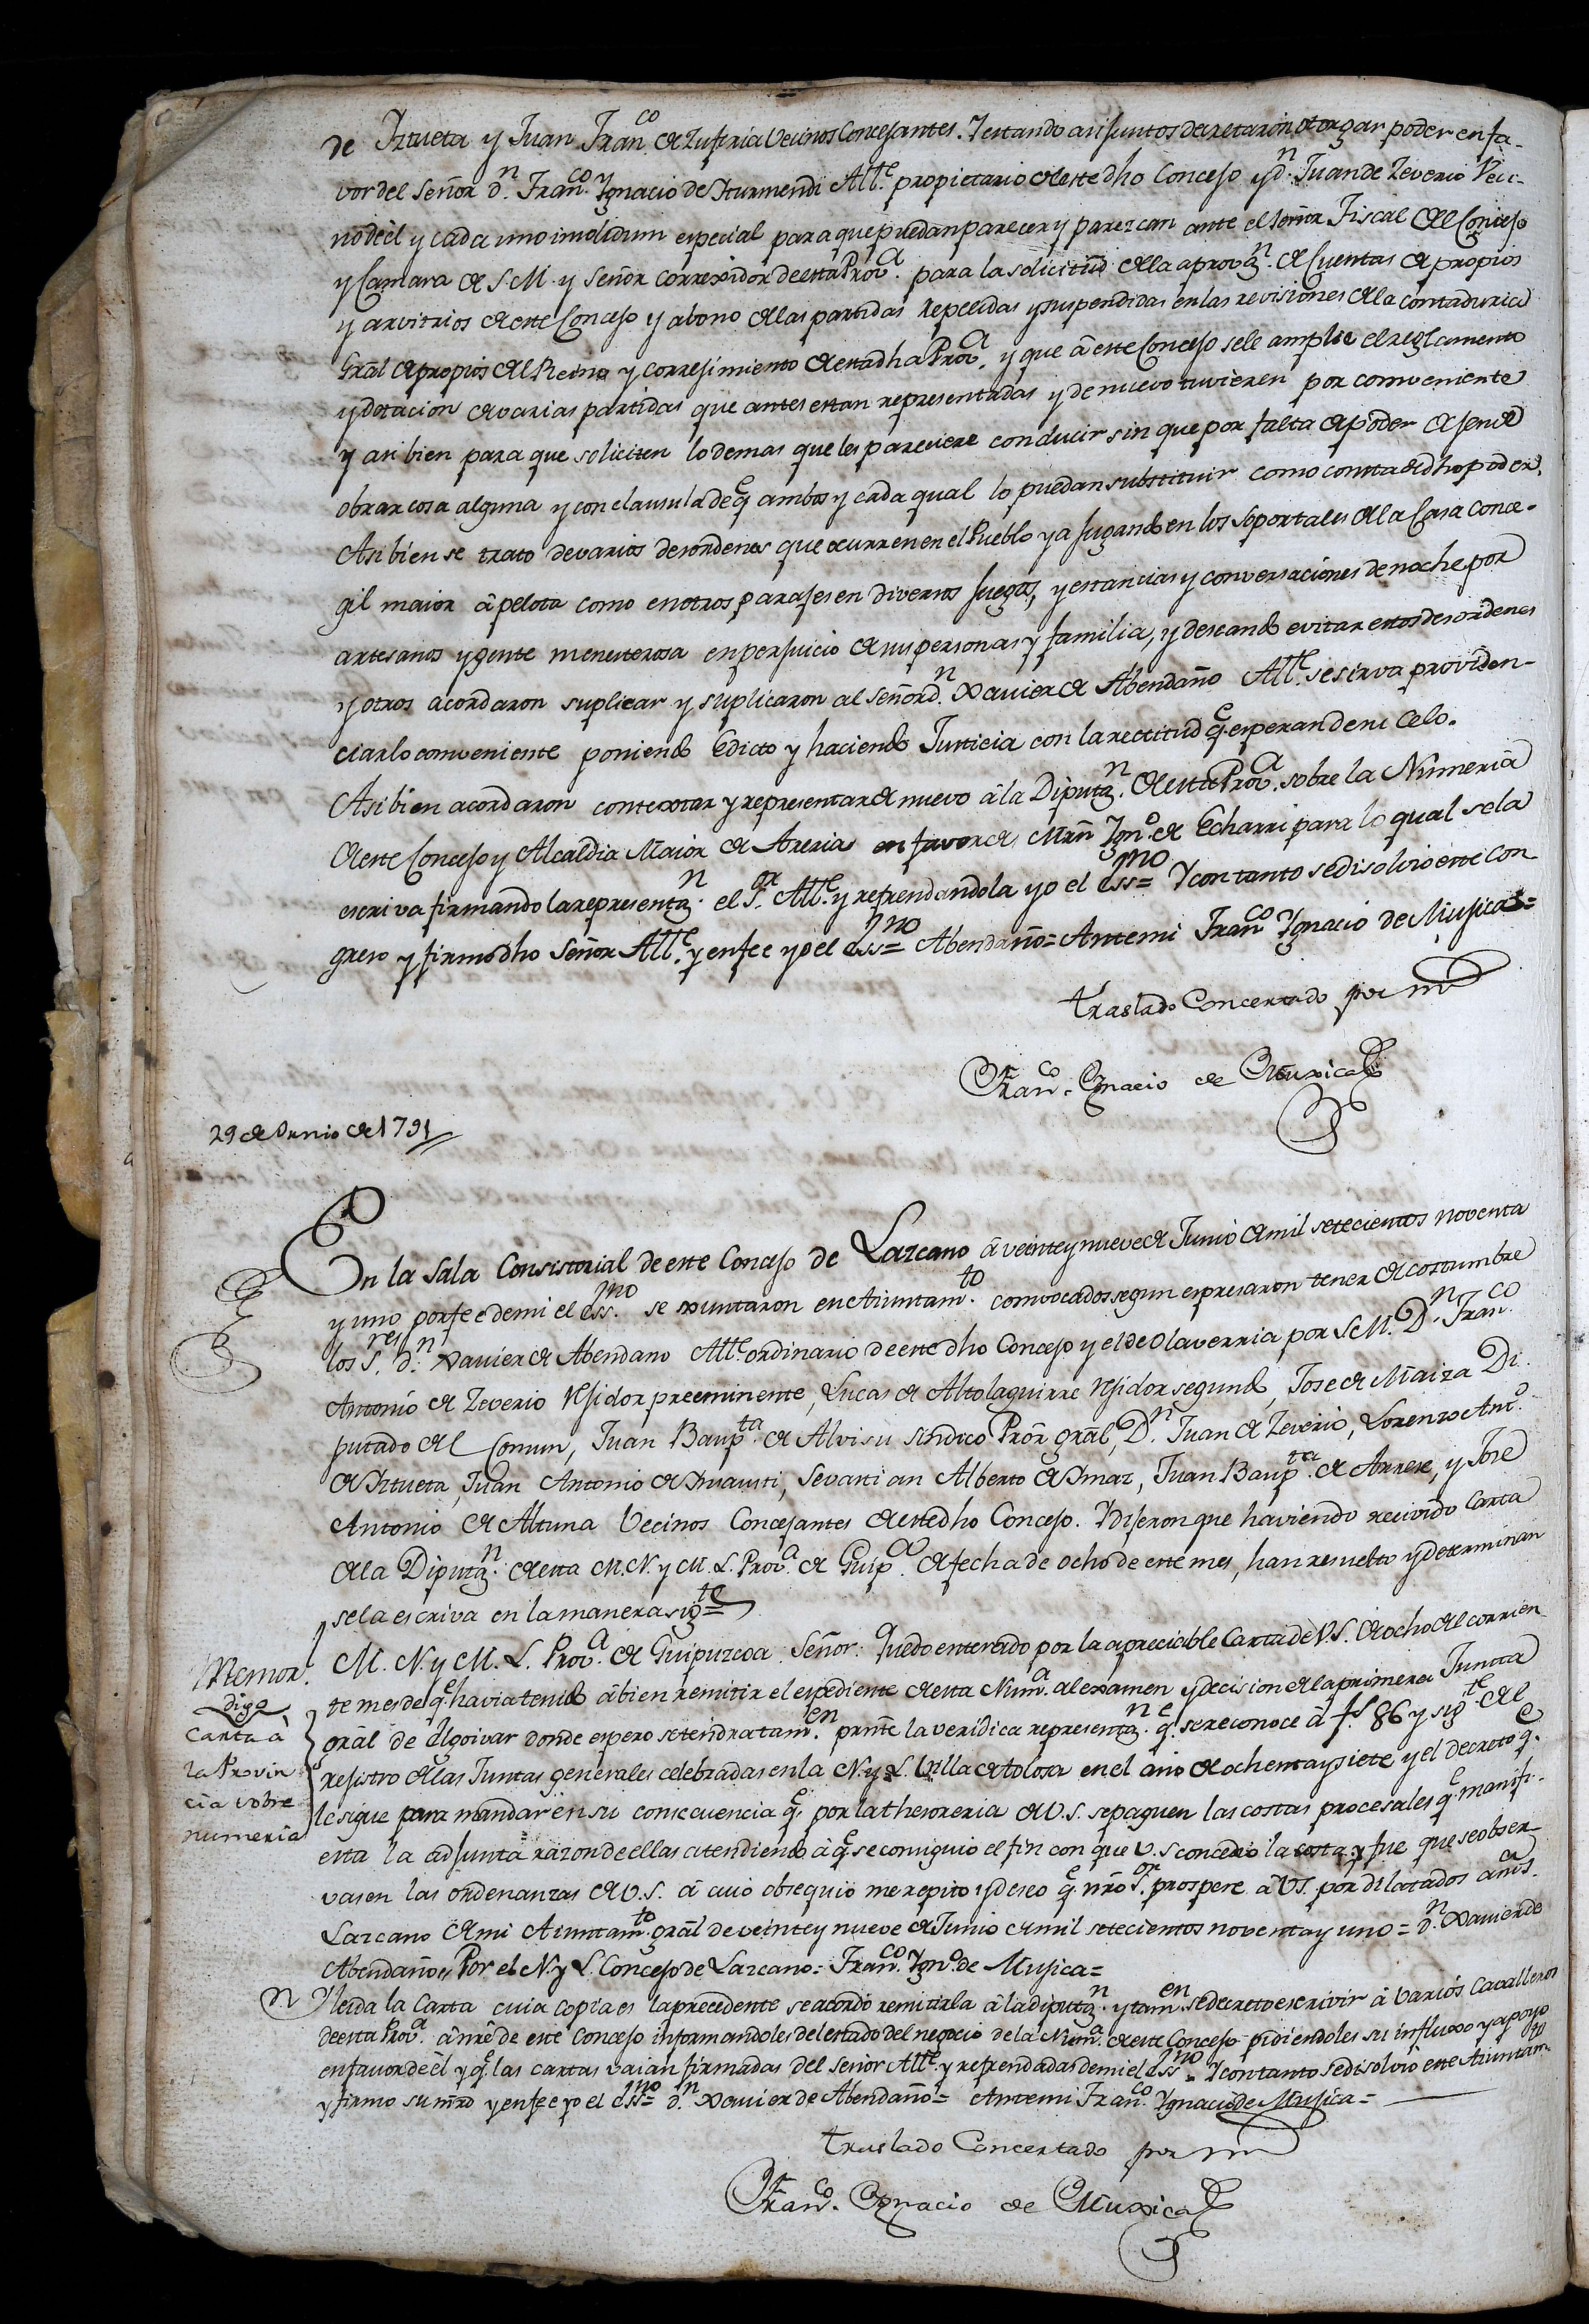 de Iztueta y Juan Fran.co de Zufiria Vecinos Concejantes. Y estando asi juntos decretaron otorgar poder en fa-
vor del Señor d.n Fran.co Ygnacio de Iturmendi All.e propietario de este dho Concejo y d.n Juan de Zeverio Veci-
no de èl y cada uno insolidum especial para que puedan parecer y parezcan ante el Señor Fiscal del Consejo
y Camara de S.M. y Señor correxidor de esta Prov.a para la solicitud de la aprovaz.n de Cuentas de propios
y arvitrios de este Concejo y abono de las partidas repelidas y suspendidas en las revisiones de la contaduria
Grãl de propios del Reino y correjimiento de esta dha Prov.a, y que â este Concejo se le amplie el reglamento
y dotacion de varias partidas que antes estan representadas y de nuevo tuvieren por conveniente
y asi bien para que soliciten lo demas que les pareciere conducir sin que por falta de poder dejen de
obrar cosa alguna y con clausula de q.e ambos y cada qual lo puedan substituir como consta de dho poder.
Asi bien se trato de varios desordenes que ocurren en el Pueblo ya jugando en los soportales de la Casa conce-
gil maior â pelota como en otros parajes en diversos juegos, y estancias y conversaciones de noche por
artesanos y gente menesterosa en perjuicio de sus personas y familia, y deseando evitar estos desordenes
y otros acordaron suplicar y suplicaron al señor d.n Xavier de Abendaño All.e se sirva providen-
ciar lo conveniente poniendo Edicto y haciendo Justicia con la rectitud q.e esperan de su Celo.
Asi bien acordaron contextar y representar de nuevo â la Diputaz.n de esta Prov.a sobre la Numeria
de este Concejo y Alcaldia Maior de Areria en favor de Mrñ Ygn.o de Echarri para lo qual se la
escriva firmando la representaz.n el S.or All.e y refrendandola yo el Ess.no= Y con tanto se disolvio este Con
greso y firmó dho Señor All.e y en fee yo el Ess.no= Abendaño= Ante mi Fran.co Ygnacio de Mujica=
Traslado Concertado por mi
Fran.co Ygnacio de Muxica
29 de Junio de 1791
En la Sala Consistorial de este Concejo de Lazcano â veinte y nueve de Junio de mil setecientos noventa
y uno por fee de mi el Ess.no se xuntaron en Aiuntam.to convocados segun expresaron tener de costumbre
los S.res d.n Xavier de Abendano All.e ordinario de este dho Concejo y el de Olaverria por S.M. D.n Fran.co
Antonio de Zeverio Rejidor preeminente, Lucas de Altolaguirre rejidor segundo, Jose de Maiza Di-
putado del Comun, Juan Baup.ta de Alvisu sindico Prõr grãl, D.n Juan de Zeverio, Lorenzo Ant.o
de Iztueta, Juan Antonio de Insausti, Sevastian Alberto de Imaz, Juan Baup.ta de Arrese, y Jose
Antonio de Altuna Vecinos Concejantes de este dho Concejo. Y dijeron que haviendo recivido Carta
de la Diputaz.n de esta M.N. y M.L. Prov.a de Guip.a de fecha de ocho de este mes, han resuelto y determinan
se la escriva en la manera sig.te=
Memor.
digo
Carta â
la Provin
cia sobre
numeria
M. N. y M. L. Prov.a de Guipuzcoa. Señor: Quedo enterado por la apreciable Carta de V.S. de ocho del corrien-
te mes de q.e havia tenido â bien remitir el expediente de esta Num.a al examen y decision de la primera Juntta
grãl de Elgoivar donde espero se tendra tam.en prnte la veridica representaz.n q.e se reconoce â f.s 86 y sig.te del
rejistro de las Juntas generales celebradas en la N. y L. Villa de tolosa en el año de ochenta y siete y el decreto q.e
le sigue para mandar en su consecuencia q.e por la thesoreria de V.S. se paguen las costas procesales q.e manifi-
esta la adjunta razon de ellas atendiendo â q.e se consiguio el fin con que V.S concedio la costa y fue que se obser-
vasen las ordenanzas de V.S. â cuio obsequio me repito y deseo q.e nrõ S.or prospere â VS. por dilatados años.
Lazcano de mi Aiuntam.to grãl de veinte y nueve de Junio de mil setecientos noventa y uno= d.n Xavier de
Abendaño= Por el N. y L. Concejo de Lazcano= Fran.co Ygn.o de Mujica=
Y leida la Carta cuia copia es la precedente se acordó remitirla â la diputaz.n y tam.en se decretó escrivir â varios Cavalleros
de esta Prov.a ânrê de este Concejo informandoles del estado del negocio de la Num.a de este Concejo pidiendoles su influxo y apoyo
en favor de èl y q.e las cartas vaian firmadas del señor All.e y refrendadas de mi el Ess.no= Y con tanto se disolvió este Aiuntam.to
y firmo su mrd y en fee yo el Ess.no= d.n Xavier de Abendaño= Ante mi Fran.co Ygnacio de Mujica=
Traslado Concertado por mi
Fran.co Ygnacio de Muxica